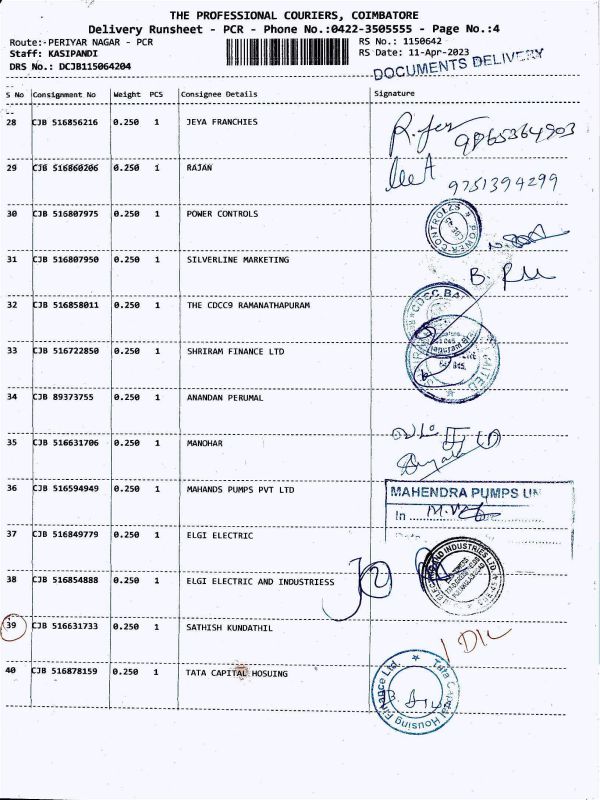 THE PROFESSIONAL COURIERS, COIMBATORE
Delivery Runsheet - PCR - Phone No.:0422-3505555 - Page No.:4
Route:- PERIYAR NAGAR - PCR RS No.: 1150642
Staff: KASIPANDI RS Date: 11-Apr-2023
DRS No.: DCJB115064204 DOCUMENTS DELIVERY
S No Consignment No Weight PCS Consignee Details Signature
28 CJB 516856216 0.250 1 JEYA FRANCHIES
9865364903
29 CJB 516860206 0.250 1 RAJAN
9751394299
30 CJB 516807975 0.250 1 POWER CONTROLS
POWER CONTROLS
31 CJB 516807950 0.250 1 SILVERLINE MARKETING
32 CJB 516858011 0.250 1 THE CDCC9 RAMANATHAPURAM
33 CJB 516722850 0.250 1 SHRIRAM FINANCE LTD
34 CJB 89373755 0.250 1 ANANDAN PERUMAL
35 CJB 516631706 0.250 1 MANOHAR
36 CJB 516594949 0.250 1 MAHANDS PUMPS PVT LTD
MAHENDRA PUMPS
In
37 CJB 516849779 0.250 1 ELGI ELECTRIC
38 CJB 516854888 0.250 1 ELGI ELECTRIC AND INDUSTRIESS
39 CJB 516631733 0.250 1 SATHISH KUNDATHIL
40 CJB 516878159 0.250 1 TATA CAPITAL HOSUING
Tata Capital Housing Finance Ltd.